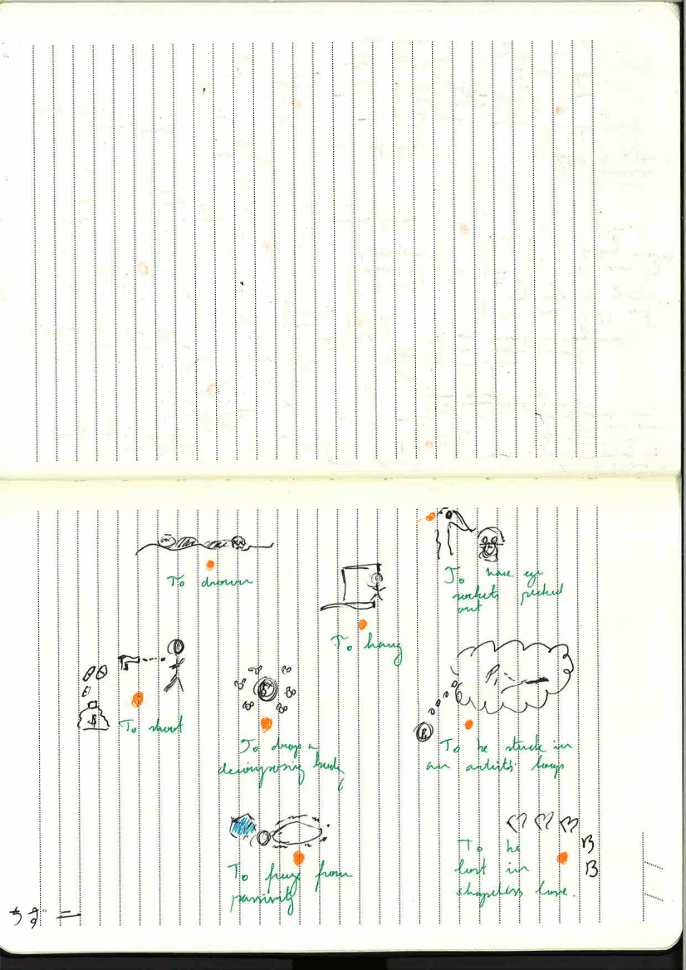 To drown
To have eye
sockets pecked
out
To hang
To shoot
To drop a
decomposing body
To be stuck in
an artists' loop
To freeze from
passivity
To be
lost in
shapeless love.